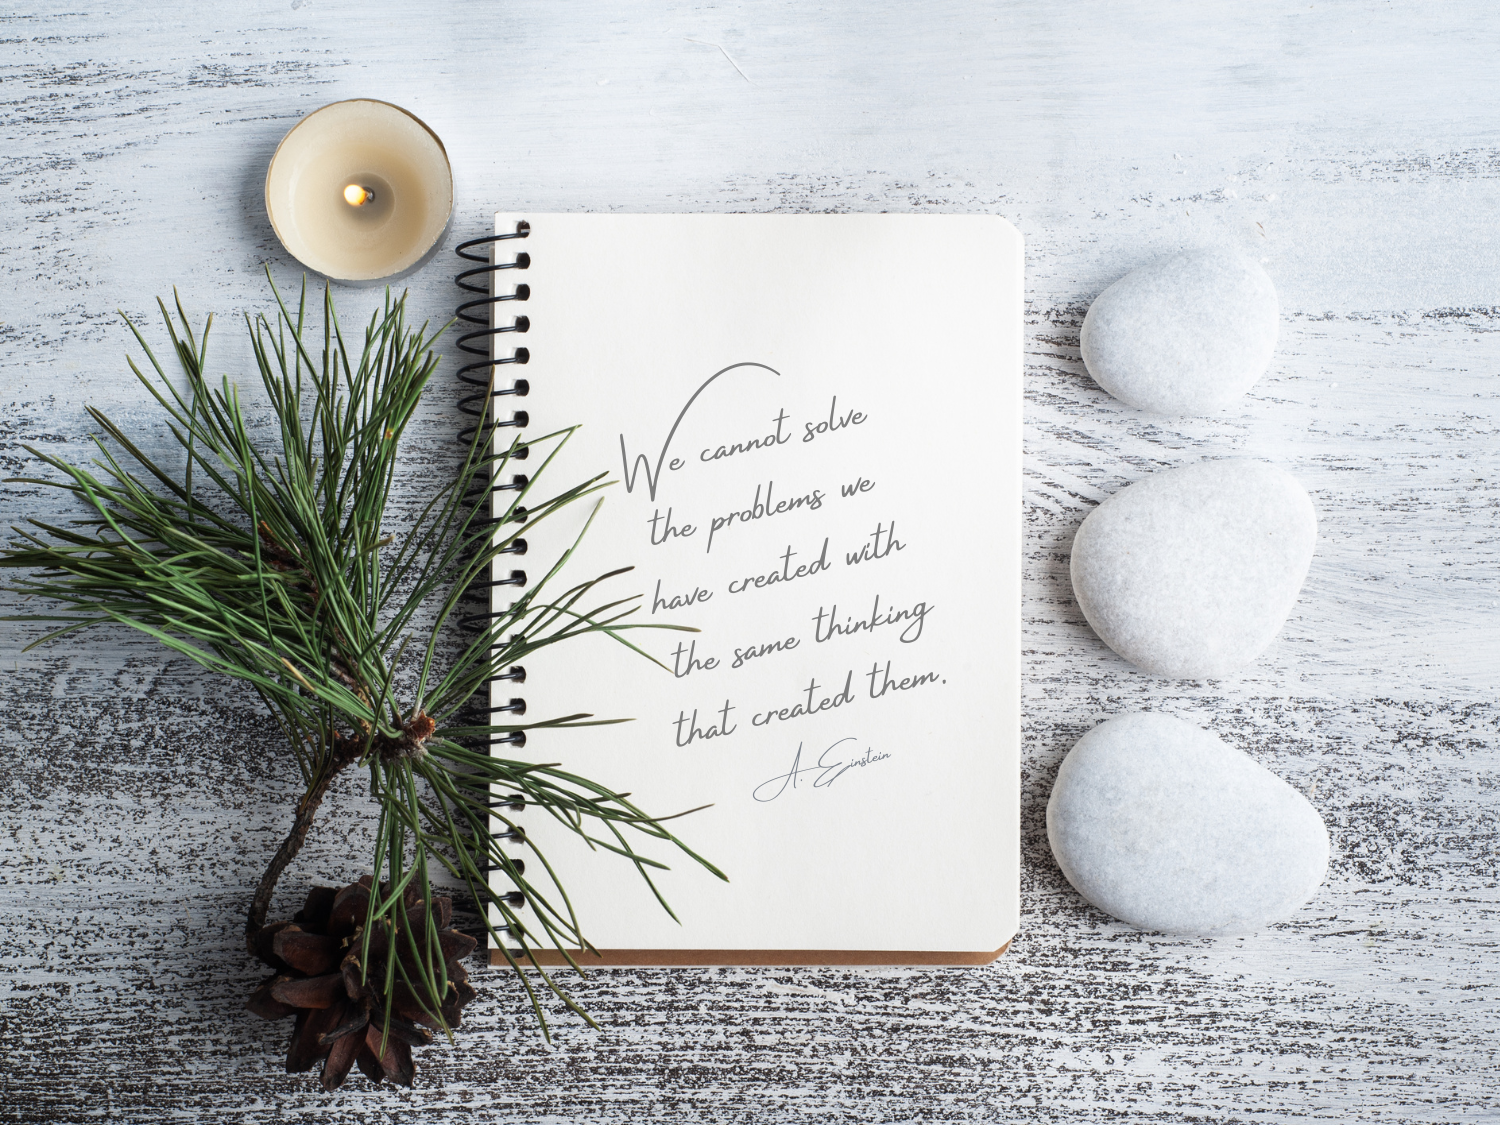 We cannot solve
the problems we
have created with
the same thinking
that created them.
A. Einstein